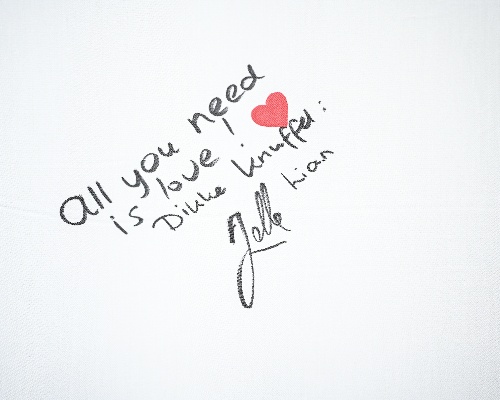 all you need
is love!
Dikke knuffel:
Lian
Jelle